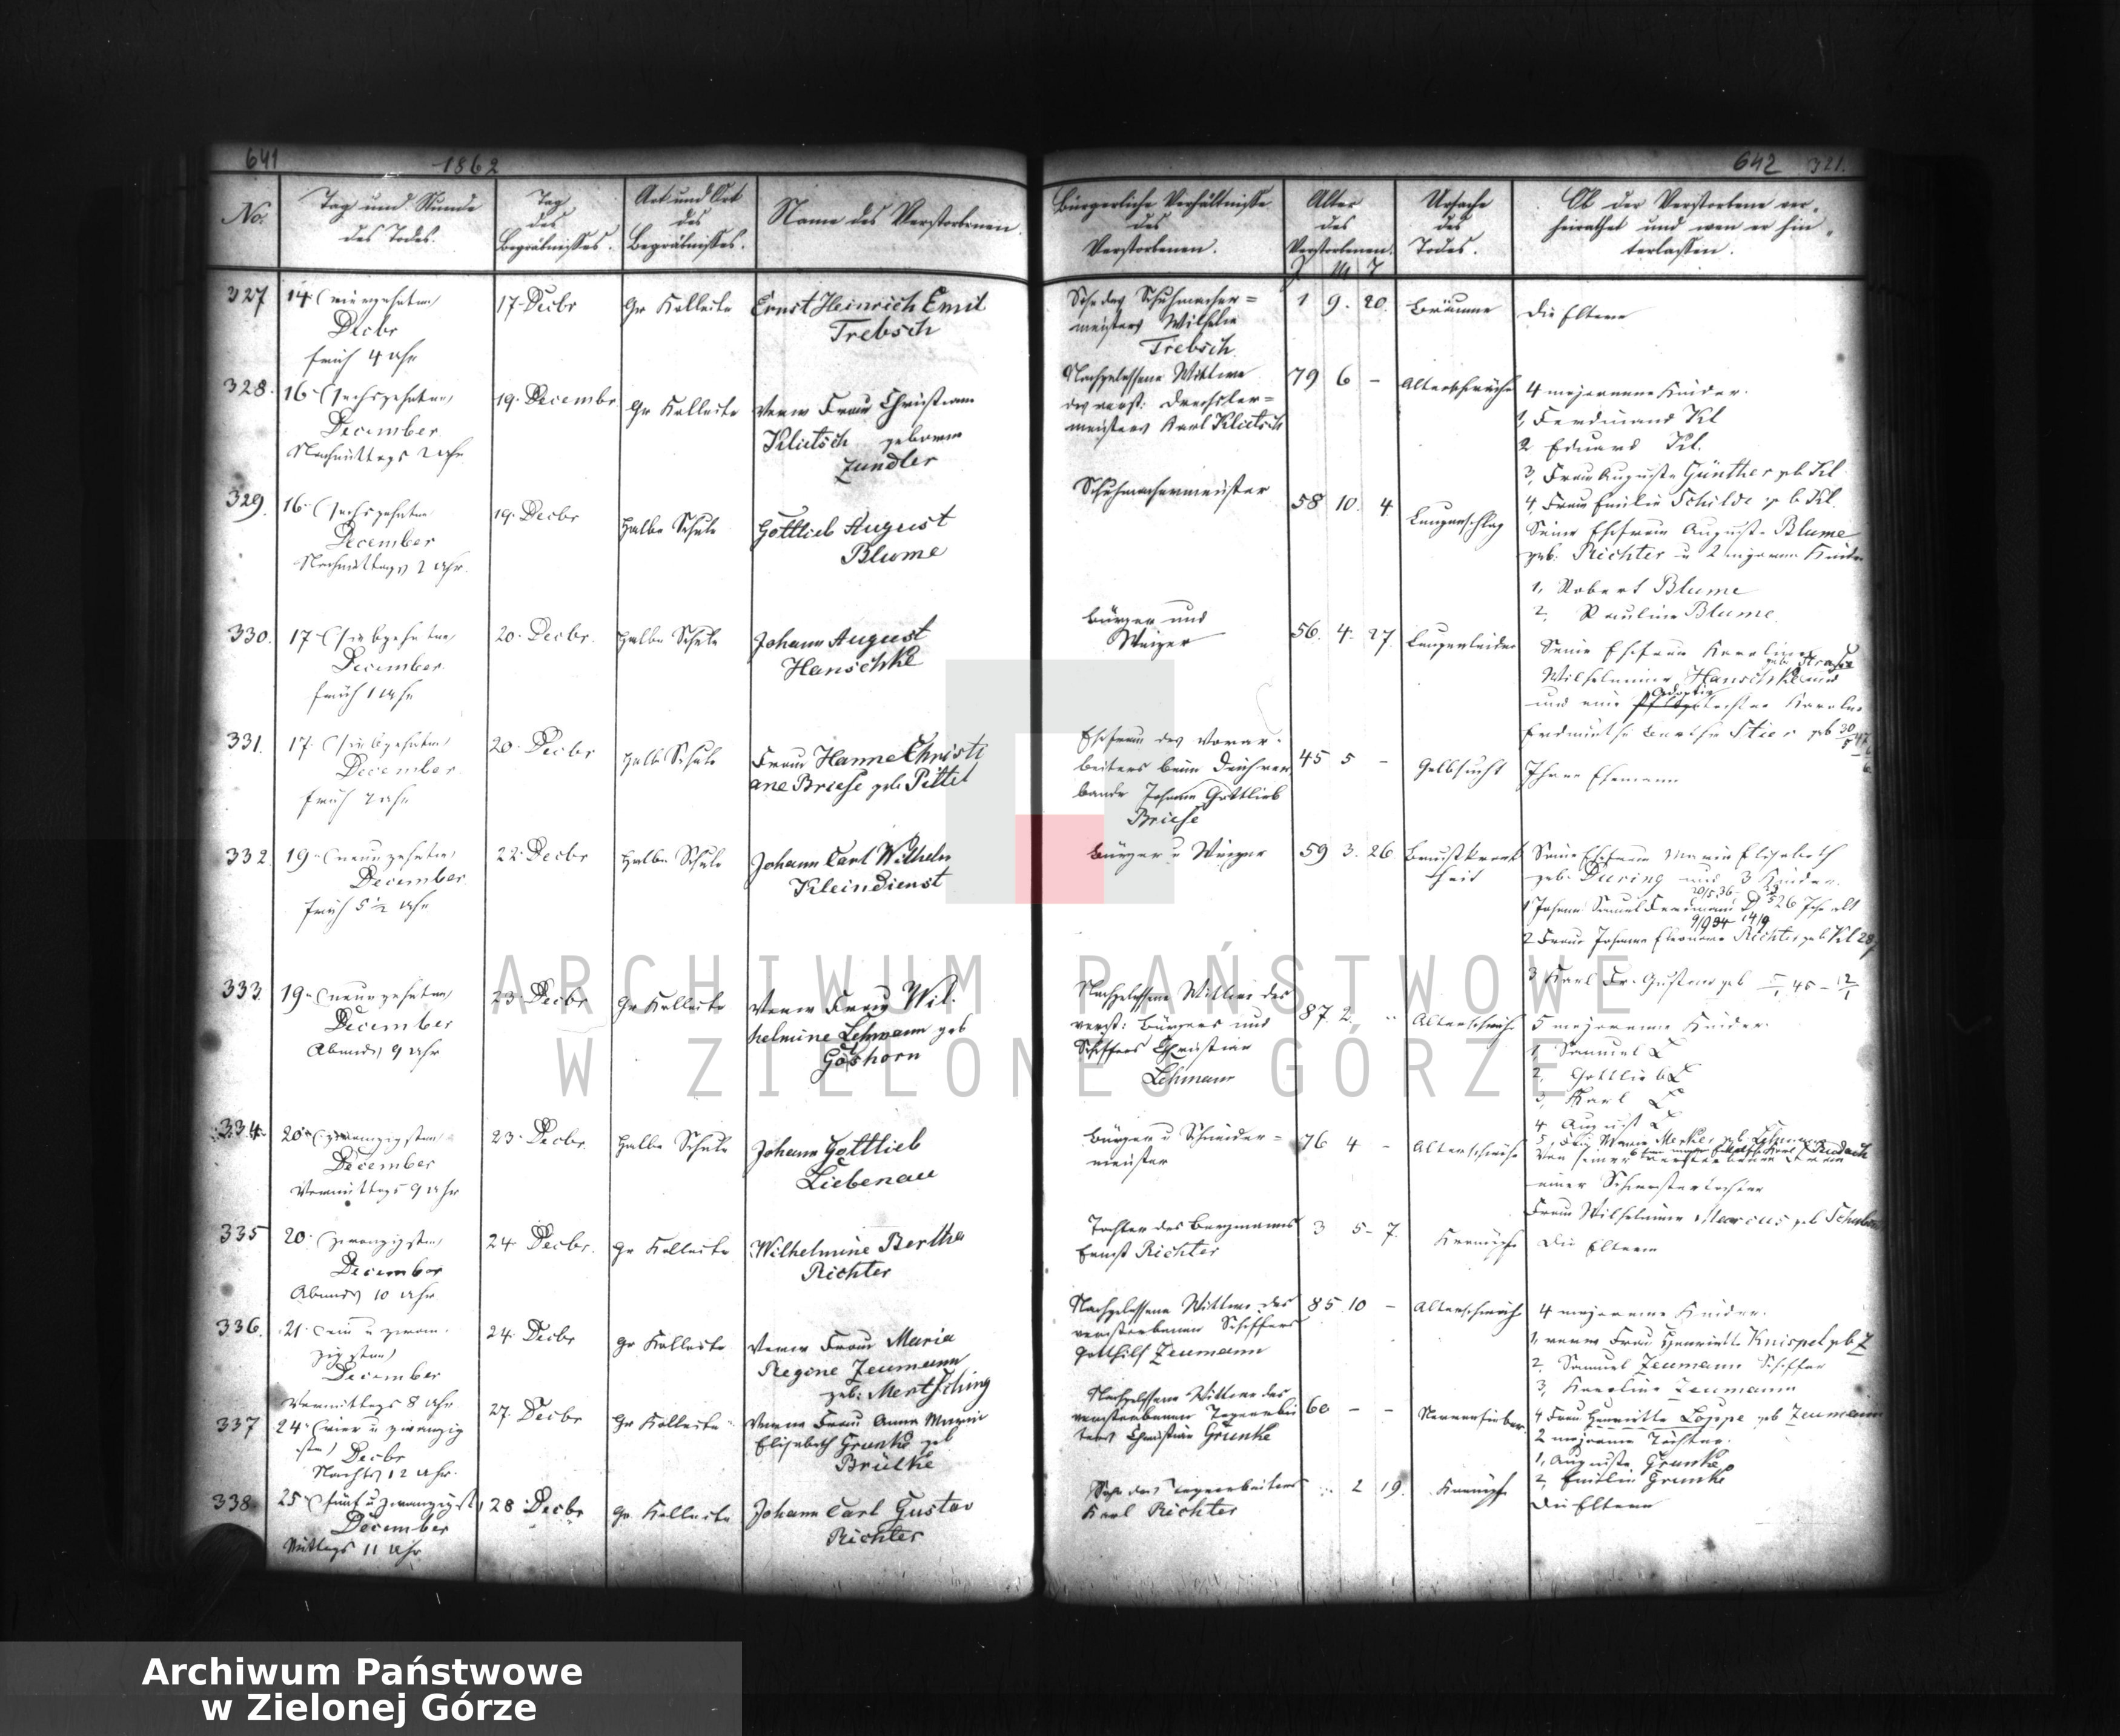 641
1862
No.
Tag und Stunde
des Todes.
Tag
des
Begräbnisses.
Art und Ort
des
Begräbnisses.
Name des Verstorbenen.
327
14 (vierzehnten)
Decbr
früh 4 Uhr
17 Decbr
Gr Kollecte
Ernst Heinrich Emil
Trebsch
328.
16 (sechszehnten)
December
Nachmittags 2 Uhr
19. Decembr
Gr Kollecte
Verw Frau Christiane
Klietsch geborene
Zundler
329.
16 (sechszehnten
December
Nachmittags 2 Uhr.
19. Decbr
halbe Schule
Gottlieb August
Blume
330.
17 (siebzehnten)
December
früh 1 Uhr
20. Decbr.
halbe Schule
Johann August
Hanschke
331.
17. (siebzehnten)
December
früh 2 Uhr
20. Decbr
halbe Schule
Frau Hanne Christi
ane Briese geb Pittel
332
19 (neunzehnten)
December
früh 5 ½ Uhr
22. Decbr
halbe Schule
Johann Carl Wilhelm
Kleindienst
333.
19 (neunzehnten)
December
Abends 9 Uhr
23. Decbr
Gr Kollecte
Verw Frau Wil-
helmine Lehmann geb
334.
20 (zwanzigsten)
December
Vormittags 9 Uhr
23. Decbr
halbe Schule
Johann Gottlieb
Liebenau
335
20. (zwanzigsten)
December
Abends 10 Uhr
24. Decbr.
Gr Kollecte
Wilhelmine Bertha
Richter
336.
21. (ein u zwan-
zigsten)
December
Vormittags 8 Uhr
24. Decbr
Gr Kollecte
Verw Frau Maria
Regine Zeumann
geb: Mertsching
337
24 (vier u zwanzig
sten)
Decbr
Nachts 12 Uhr.
27. Decbr
Gr Kollecte
Verw Frau Anna Marie
Elisabeth Grunke geb
Brülke
338.
25 (fünf u zwanzigst
December
Mittags 11 Uhr
28 Decbr
Gr Kollecte
Johann Carl Gustav
Richter
642 321.
Bürgerliche Verhältnisse
des
Verstorbenen.
Alter
des
Verstorbenen.
J M T
Ursache
des
Todes.
Ob der Verstorbene ver-
heirathet und wen er hin-
terlassen.
Sohn des Schuhmacher=
meisters Wilhelm
Trebsch.
1 9. 20.
Bräune
Die Eltern
Nachgelassene Wittwe
des verst: Drechsler=
meisters Karl Klietsch
79 6 -
Altersschwäche
4 majorenne Kinder.
1, Ferdinand Kl
2 Eduard Kl.
3, Frau Auguste Günther geb Kl
4, Frau Emilie Schilde geb Kl.
Schuhmachermeister
58 10. 4
Lungenschlag
Seine Ehefrau Auguste Blume
geb. Richter u 2 majorenne Kinder
1, Robert Blume
2, Pauline Blume.
Bürger und
Winzer
56. 4. 27.
Lungenleiden
Seine Ehefrau Karoline
Wilhelmine Hanschke
und eine Adoptivtochter Karoline
Ehefrau des Vorar-
beiters beim Deichver
bande Johann Gottlieb
Briese
45 5 -
Gelbsucht
Ihren Ehemann
Bürger u Winzer
59 3. 26.
Brustkrank
heit
Seine Ehefrau Marie Elisabeth
geb. Duering und 3 Kinder.
Nachgelassene Wittwe des
verst: Bürgers und
Schiffers Christian
Lehmann
87. 2. -
Altersschwäche
5 majorenne Kinder.
1, Samuel L
2, Gottlieb L
3, Karl L
4 August L
Bürger u Schneider=
meister
76 4 -
Altersschwäche
einer Schwestertochter
Frau Wilhelmine Marcus geb
Tochter des Bergmanns
Ernst Richter
3 5- 7.
Krämpfe
Die Eltern
Nachgelassene Wittwe des
verstorbenen Schiffers
Gotthilf Zeumann
85. 10 -
Altersschwäche
4 majorenne Kinder.
1, verw Frau Henriette Knispel geb Z
2, Samuel Zeumann Schiffer
3, Karoline Zeumann
4 Frau Henriette Löppe geb Zeumann
Nachgelassene Wittwe des
verstorbenen Tagearbei
ters Christian Grunke
60 - -
Nervenfieber
2 majorenne Töchter.
1, Auguste Grunke
2, Emilie Grunke
Sohn des Tagearbeiters
Karl Richter
2 19.
Krämpfe
Die Eltern
ARCHIWUM PAŃSTWOWE
W ZIELONEJ GÓRZE
Archiwum Państwowe
w Zielonej Górze